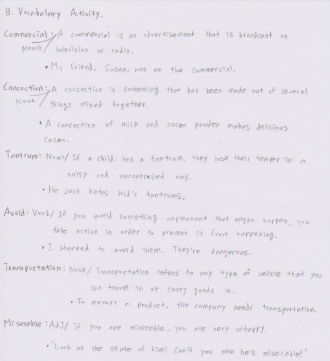 B. Vocabulary Activity.
Commercial: A commercial is an advertisement that is broadcast on
Noun/ television or radio.
• My friend, Susan, was on the commercial.
Concoction: A concoction is something that has been made out of several
Noun/ things mixed together.
• A concoction of milk and cocoa powder makes delicious
cocoa.
Tantrum: Noun/ If a child has a tantrum, they lose their temper in a
noisy and uncontrolled way.
• He just hates kid's tantrums.
Avoid: Verb/ If you avoid something unpleasant that might happen, you
take action in order to prevent it from happening.
• I started to avoid them. They're dangerous.
Transportation: Noun/ Transportation refers to any type of vehicle that you
can travel in or carry goods in.
• To export a product, the company needs transportation.
Miserable: Adj/ If you are miserable, you are very unhappy.
• "Look at the state of him! Can't you see he's miserable?"